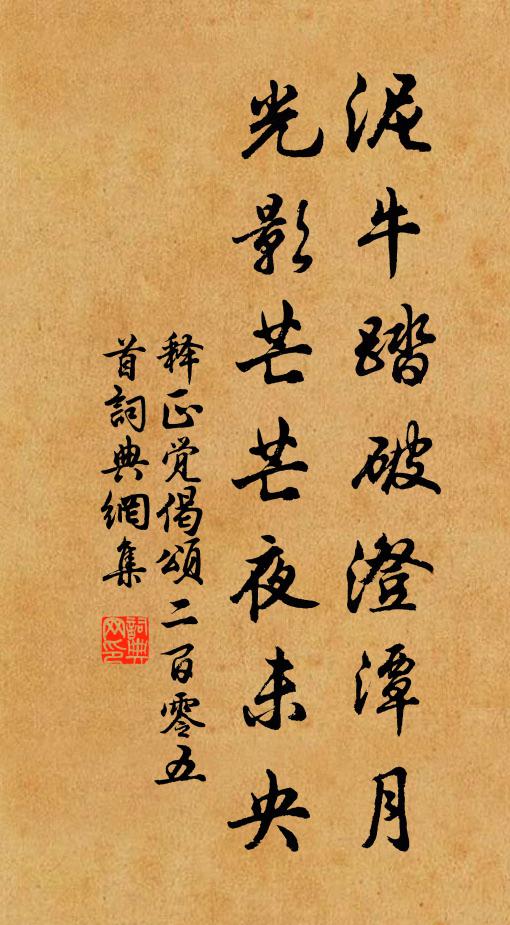 泥牛踏破澄潭月
光影芒芒夜未央
释正觉偈颂二百零五
首詞典網集
詞典網印